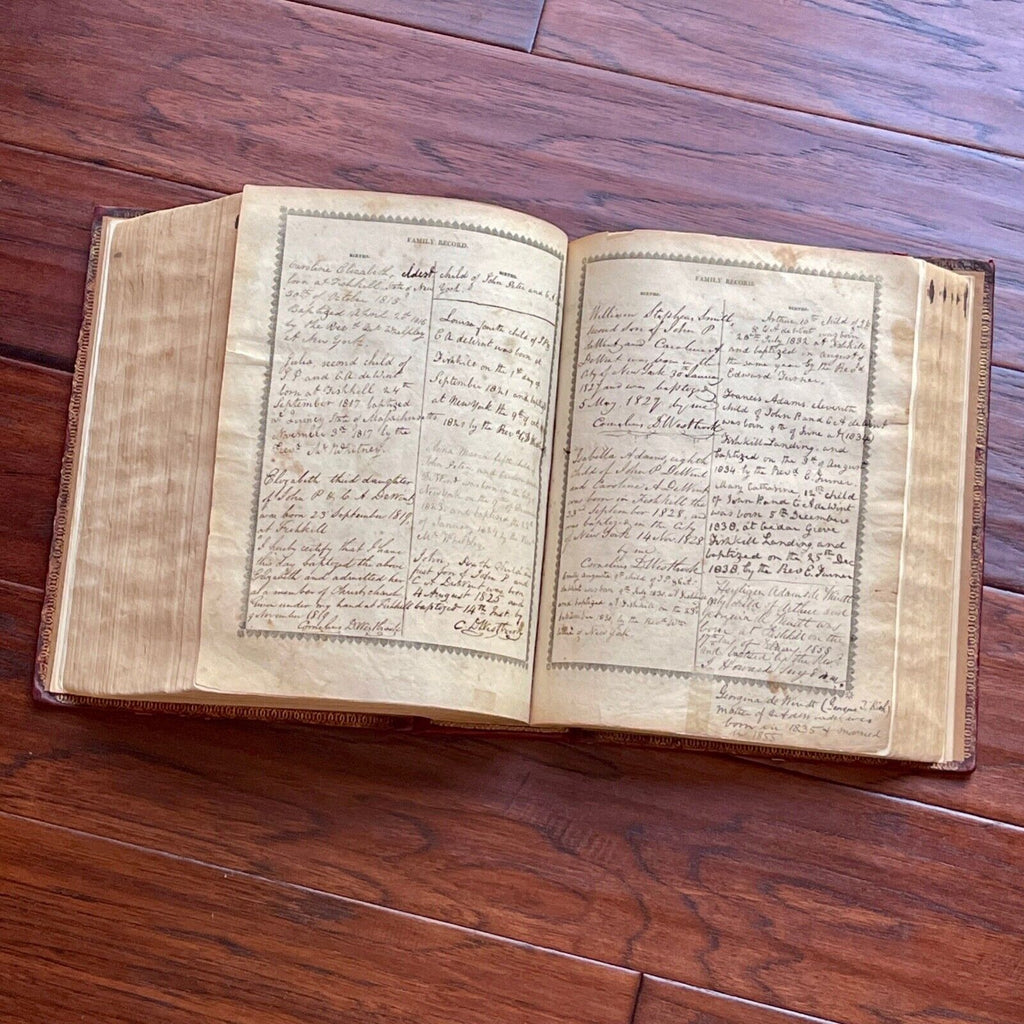 FAMILY RECORD.
BIRTHS.
Caroline Elizabeth, eldest child of John Peter and C A
born at Fishkill State of New York
30th of October 1815
Baptized April 2d 1816
by the Revd
at New York
Julia second child of
J P and C A deWint
born at Fishkill 24th
September 1817 baptized
at Quincy State of Massachusetts
November 3d 1817 by the
Revd Mr Whitney.
Elizabeth third daughter
of John P & C A DeWint
was born 23 September 1819
at Fishkill
I hereby certify that I have
this day baptized the above
Elizabeth and admitted her
as a member of Christs church
Given under my hand at Fishkill
November 1819
Cornelius D Westbrook
BIRTHS.
Louisa fourth child of J P &
C A deWint was born at
Fishkill on the 1st day of
September 1821 and baptized
at New York the 9th of
1821 by the Revd
child of
John Peter and Caroline
Wint was born in the City
New York on the
1823 and baptized the
of January by the Revd
Mr
John, Sixth Child and
first son of John P and
C A DeWint was born
4 August 1825 and
baptized 14th Inst. by
C D Westbrook
FAMILY RECORD.
BIRTHS.
William Stephens Smith,
second Son of John P
deWint and Caroline A
DeWint was born in the
City of New York 30 January
1827 and was baptized
5 May 1827 by me
Cornelius D Westbrook
Isabella Adams, eighth
child of John P DeWint
and Caroline A DeWint
was born in Fishkill the
23d September 1828 and
was baptized in the City
of New York 14 Nov. 1828
by me
Cornelius D Westbrook
Emily Augusta 9th child of J P & C A
deWint was born 9th July 1830 at Fishkill
and baptized at Fishkill on the
September 1830 by the Revd Mr
of New York
BIRTHS.
Arthur 10th child of J P
& C A deWint was born
28th July 1832 at Fishkill
and baptized in August of
the same year by the Revd
Edward Turner,
Francis Adams eleventh
child of John P and C A deWint
was born 9th of June A.D. (1834)
Fishkill Landing, and
baptized on the 3d of August
1834 by the Revd E. Turner
Mary Catharine, 12th child
of John P and C A deWint
was born 5th December
1838, at Cedar Grove
Fishkill Landing and
baptized on the 25th Dec
1838, by the Rev E. Turner
Heyliger Adams de Windt
only child of Arthur and
was
born at Fishkill on the
17th of 1858
and baptized by the Revd
J Howard
Georgina de Windt
mother of H Adams was
born in 1835 & married
in 1855